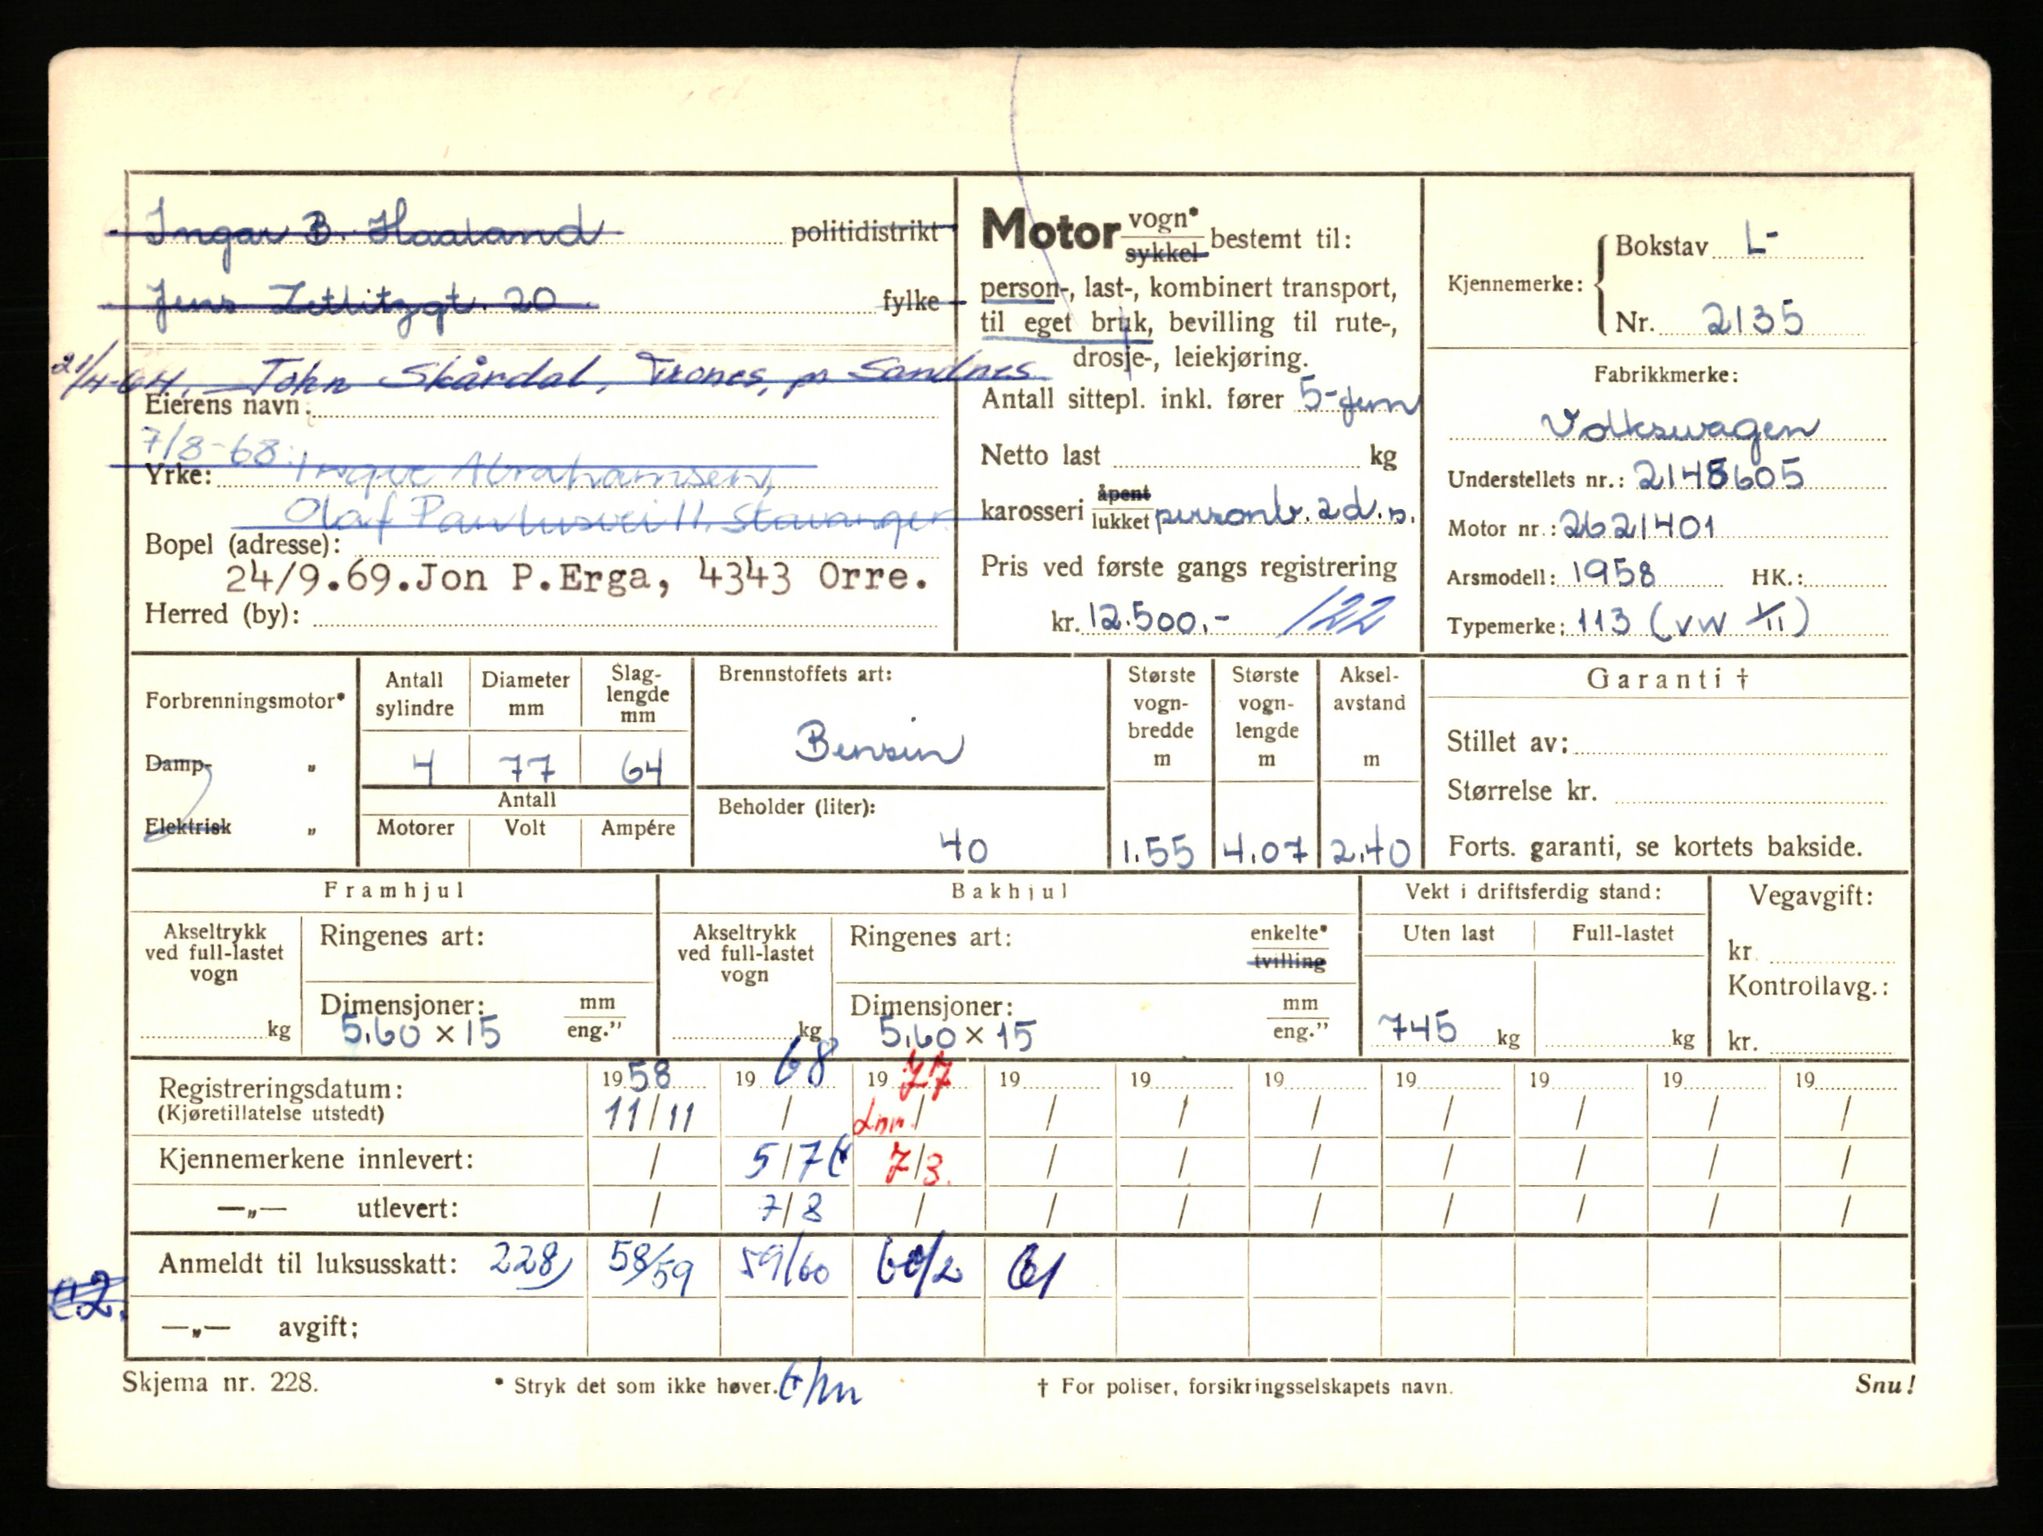 Ingar B. Haaland politidistrikt
Jens Zetlitzgt. 20 fylke
21/4-64, John Skårdal, Trones, pr Sandnes
Eierens navn:
7/8-68: Ingve Abrahamsen,
Yrke:
Olaf Paulusvei 11, Stavanger
Bopel (adresse):
24/9.69.Jon P.Erga, 4343 Orre.
Herred (by):
Motor vogn* sykkel bestemt til:
person-, last-, kombinert transport,
til eget bruk, bevilling til rute-,
drosje-, leiekjøring.
Antall sittepl. inkl. fører 5-fem
Netto last kg
karosseri åpent lukket personb. 2 d. s.
Pris ved første gangs registrering
kr. 12.500,- 122
Kjennemerke: Bokstav L-
Nr. 2135
Fabrikkmerke:
Volkswagen
Understellets nr.: 2148605
Motor nr.: 2621401
Arsmodell: 1958 HK.:
Typemerke: 113 (VW XII)
Forbrenningsmotor*
Damp- „
Elektrisk „
Antall sylindre Diameter mm Slag-lengde mm
4 77 64
Antall
Motorer Volt Ampére
Brennstoffets art:
Bensin
Beholder (liter):
40
Største vogn-bredde m Største vogn-lengde m Aksel-avstand m
1.55 4.07 2.40
Garanti †
Stillet av:
Størrelse kr.
Forts. garanti, se kortets bakside.
Framhjul
Akseltrykk ved full-lastet vogn
kg
Ringenes art:
Dimensjoner: mm
5.60 x 15 eng.”
Bakhjul
Akseltrykk ved full-lastet vogn
kg
Ringenes art: enkelte*
tvilling
Dimensjoner: mm
5.60 x 15 eng.”
Vekt i driftsferdig stand:
Uten last Full-lastet
745 kg kg
Vegavgift:
kr.
Kontrollavg.:
kr.
Registreringsdatum: 19 58 19 68 19 77 19 19 19 19 19 19 19
(Kjøretillatelse utstedt) 11/11 / Lnr. / / / / / / / /
Kjennemerkene innlevert: / 5/7 7/3. / / / / / / /
—„— utlevert: / 7/8 / / / / / / / /
Anmeldt til luksusskatt: 228 58/59 59/60 60/2 61
—„— avgift;
Skjema nr. 228. * Stryk det som ikke høver. † For poliser, forsikringsselskapets navn. Snu!